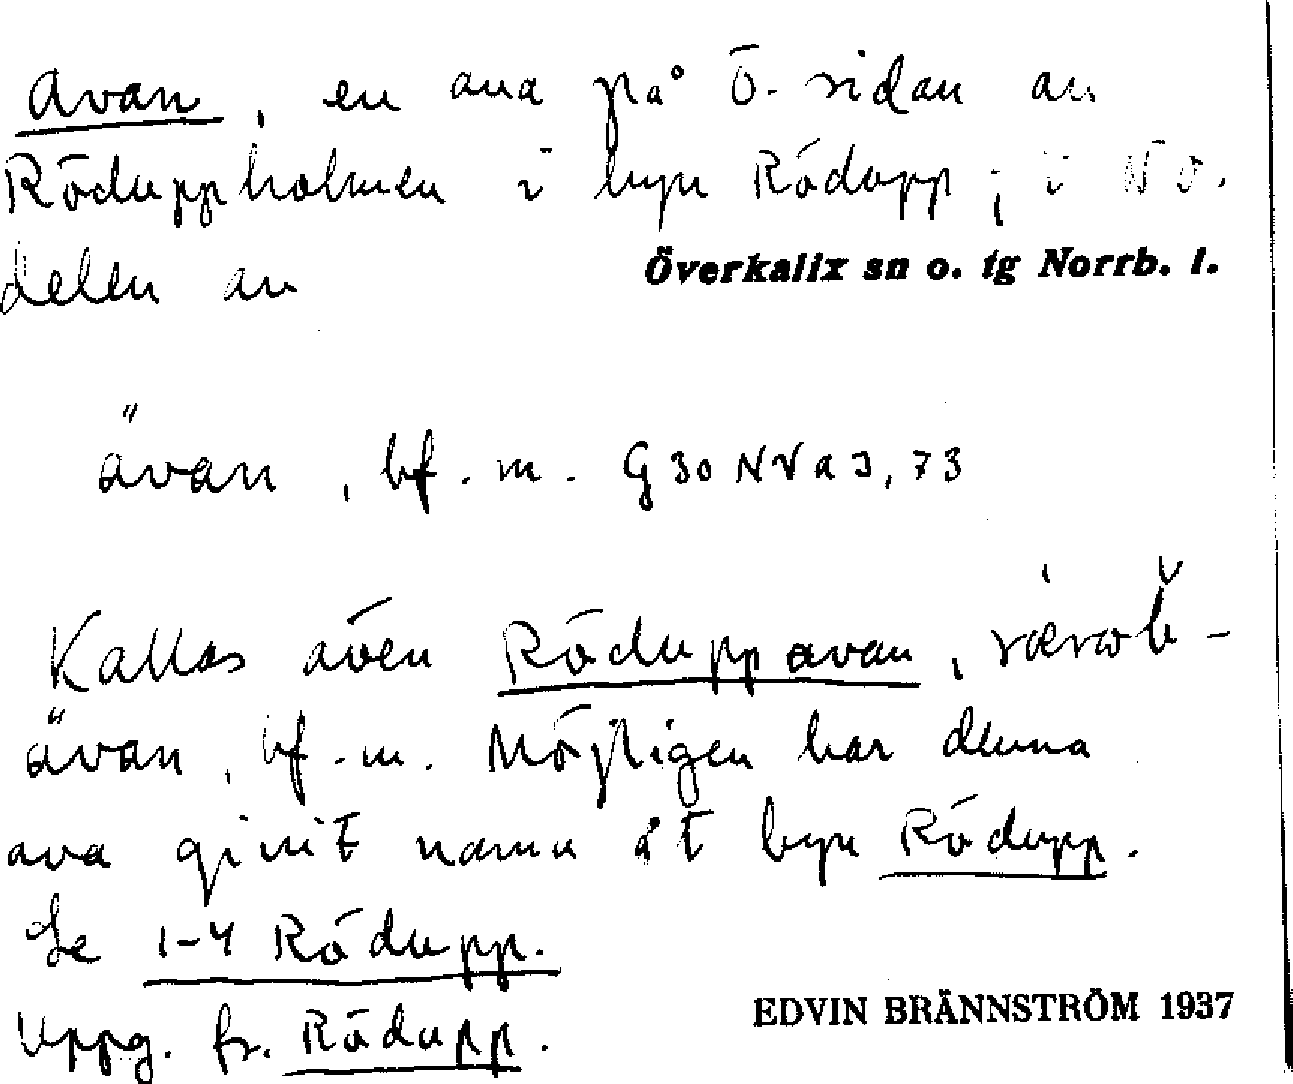 Avan, en ava på Ö. sidan av
Röduppholmen i byn Rödupp; i NÖ.
delen av Överkalix sn o. tg Norrb. l.
ävan, bf. m. G 30 NV a 3, 73
Kallas även Röduppavan,
ävan, bf. m. Möjligen har denna
ava givit namn åt byn Rödupp.
Se 1-4 Rödupp.
Uppg. fr. Rödupp.
EDVIN BRÄNNSTRÖM 1937